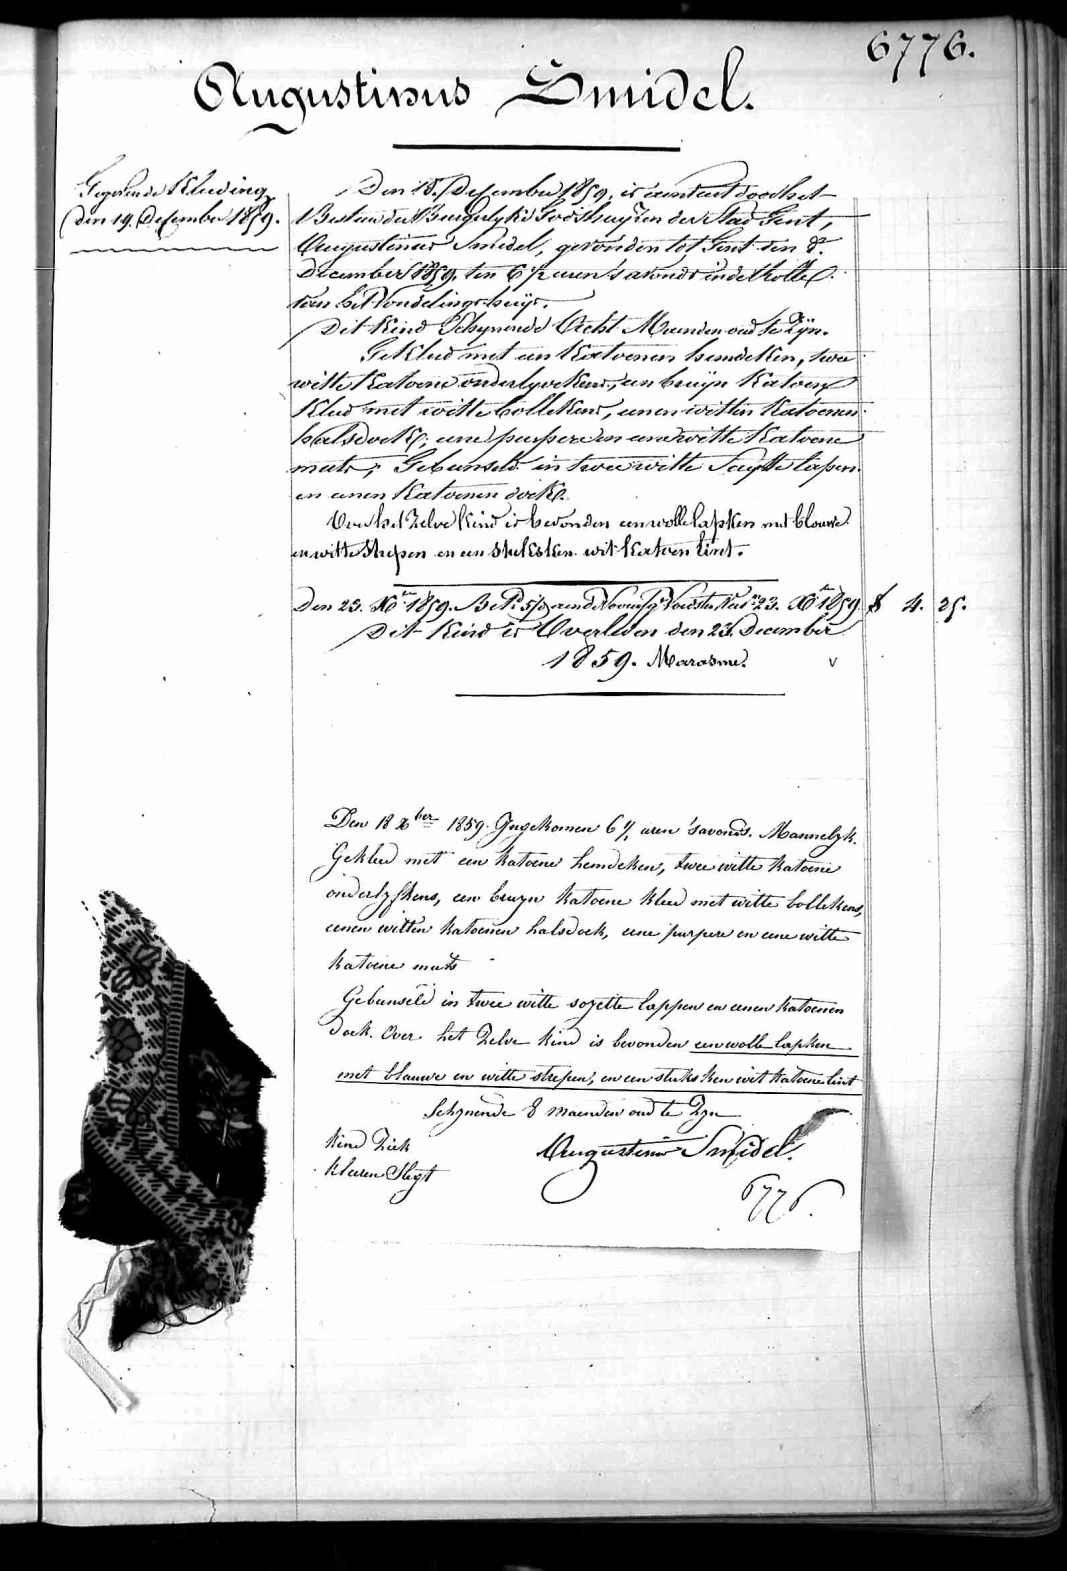 6776.
Augustinus Smidel.
Gegevende Kleeding
den 19. Desember 1859.
Den 18. Desember 1859, is aenveerd door het
Bestuur der Burgerlyke Godshuyzen der Stad Gent,
Augustinus Smidel, gevonden tot Gent den 18
december 1859, ten 6 1/2 uren 's avonds in de Rolle
van het Vondelingshuys.
Dit Kind Schynende Acht Maenden oud te Zyn.
Gekleed met een Katoenen hemdeken, twee
witte Katoene onderlyvekens, een bruyn Katoen
Kleed met witte bollekens, eenen witten Katoenen
halsdoek, eene purpere en eene witte Katoene
muts; Gebunseld in twee witte Sayette lapen
en eenen Katoenen doek.
Over het Zelve Kind is bevonden een wolle lapken met blouwe
en witte Strepen en een Stuksken wit Katoen lint.
Den 23. Xber 1859. 23. Xber 1859 8 4. 25.
Dit Kind is Overleden den 23. December
1859. Marasme. v
Den 18 Xber 1859. Ingekomen 6 1/2 uren 's avonds. Mannelyk.
Gekleed met een katoene hemdeken, twee witte katoene
onderlyfkens, een bruyn katoene kleed met witte bollekens,
eenen witten katoenen halsdoek, eene purpere en eene witte
katoene muts
Gebunseld in twee witte sayette lappen en eenen katoenen
doek. Over het Zelve kind is bevonden een wolle lapken
met blauwe en witte strepen, en een stuksken wit katoene lint
Schynende 8 maenden oud te Zyn
kind Ziek
kleeren Slegt
Augustinus Smidel.
6776.